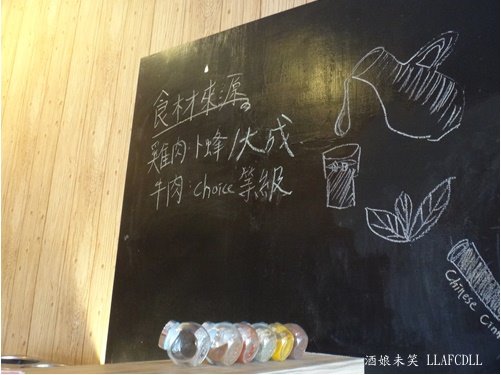 食材來源。
雞肉:卜蜂/大成
牛肉:choice等級
Chinese Cinn
酒娘未笑 LLAFCDLL